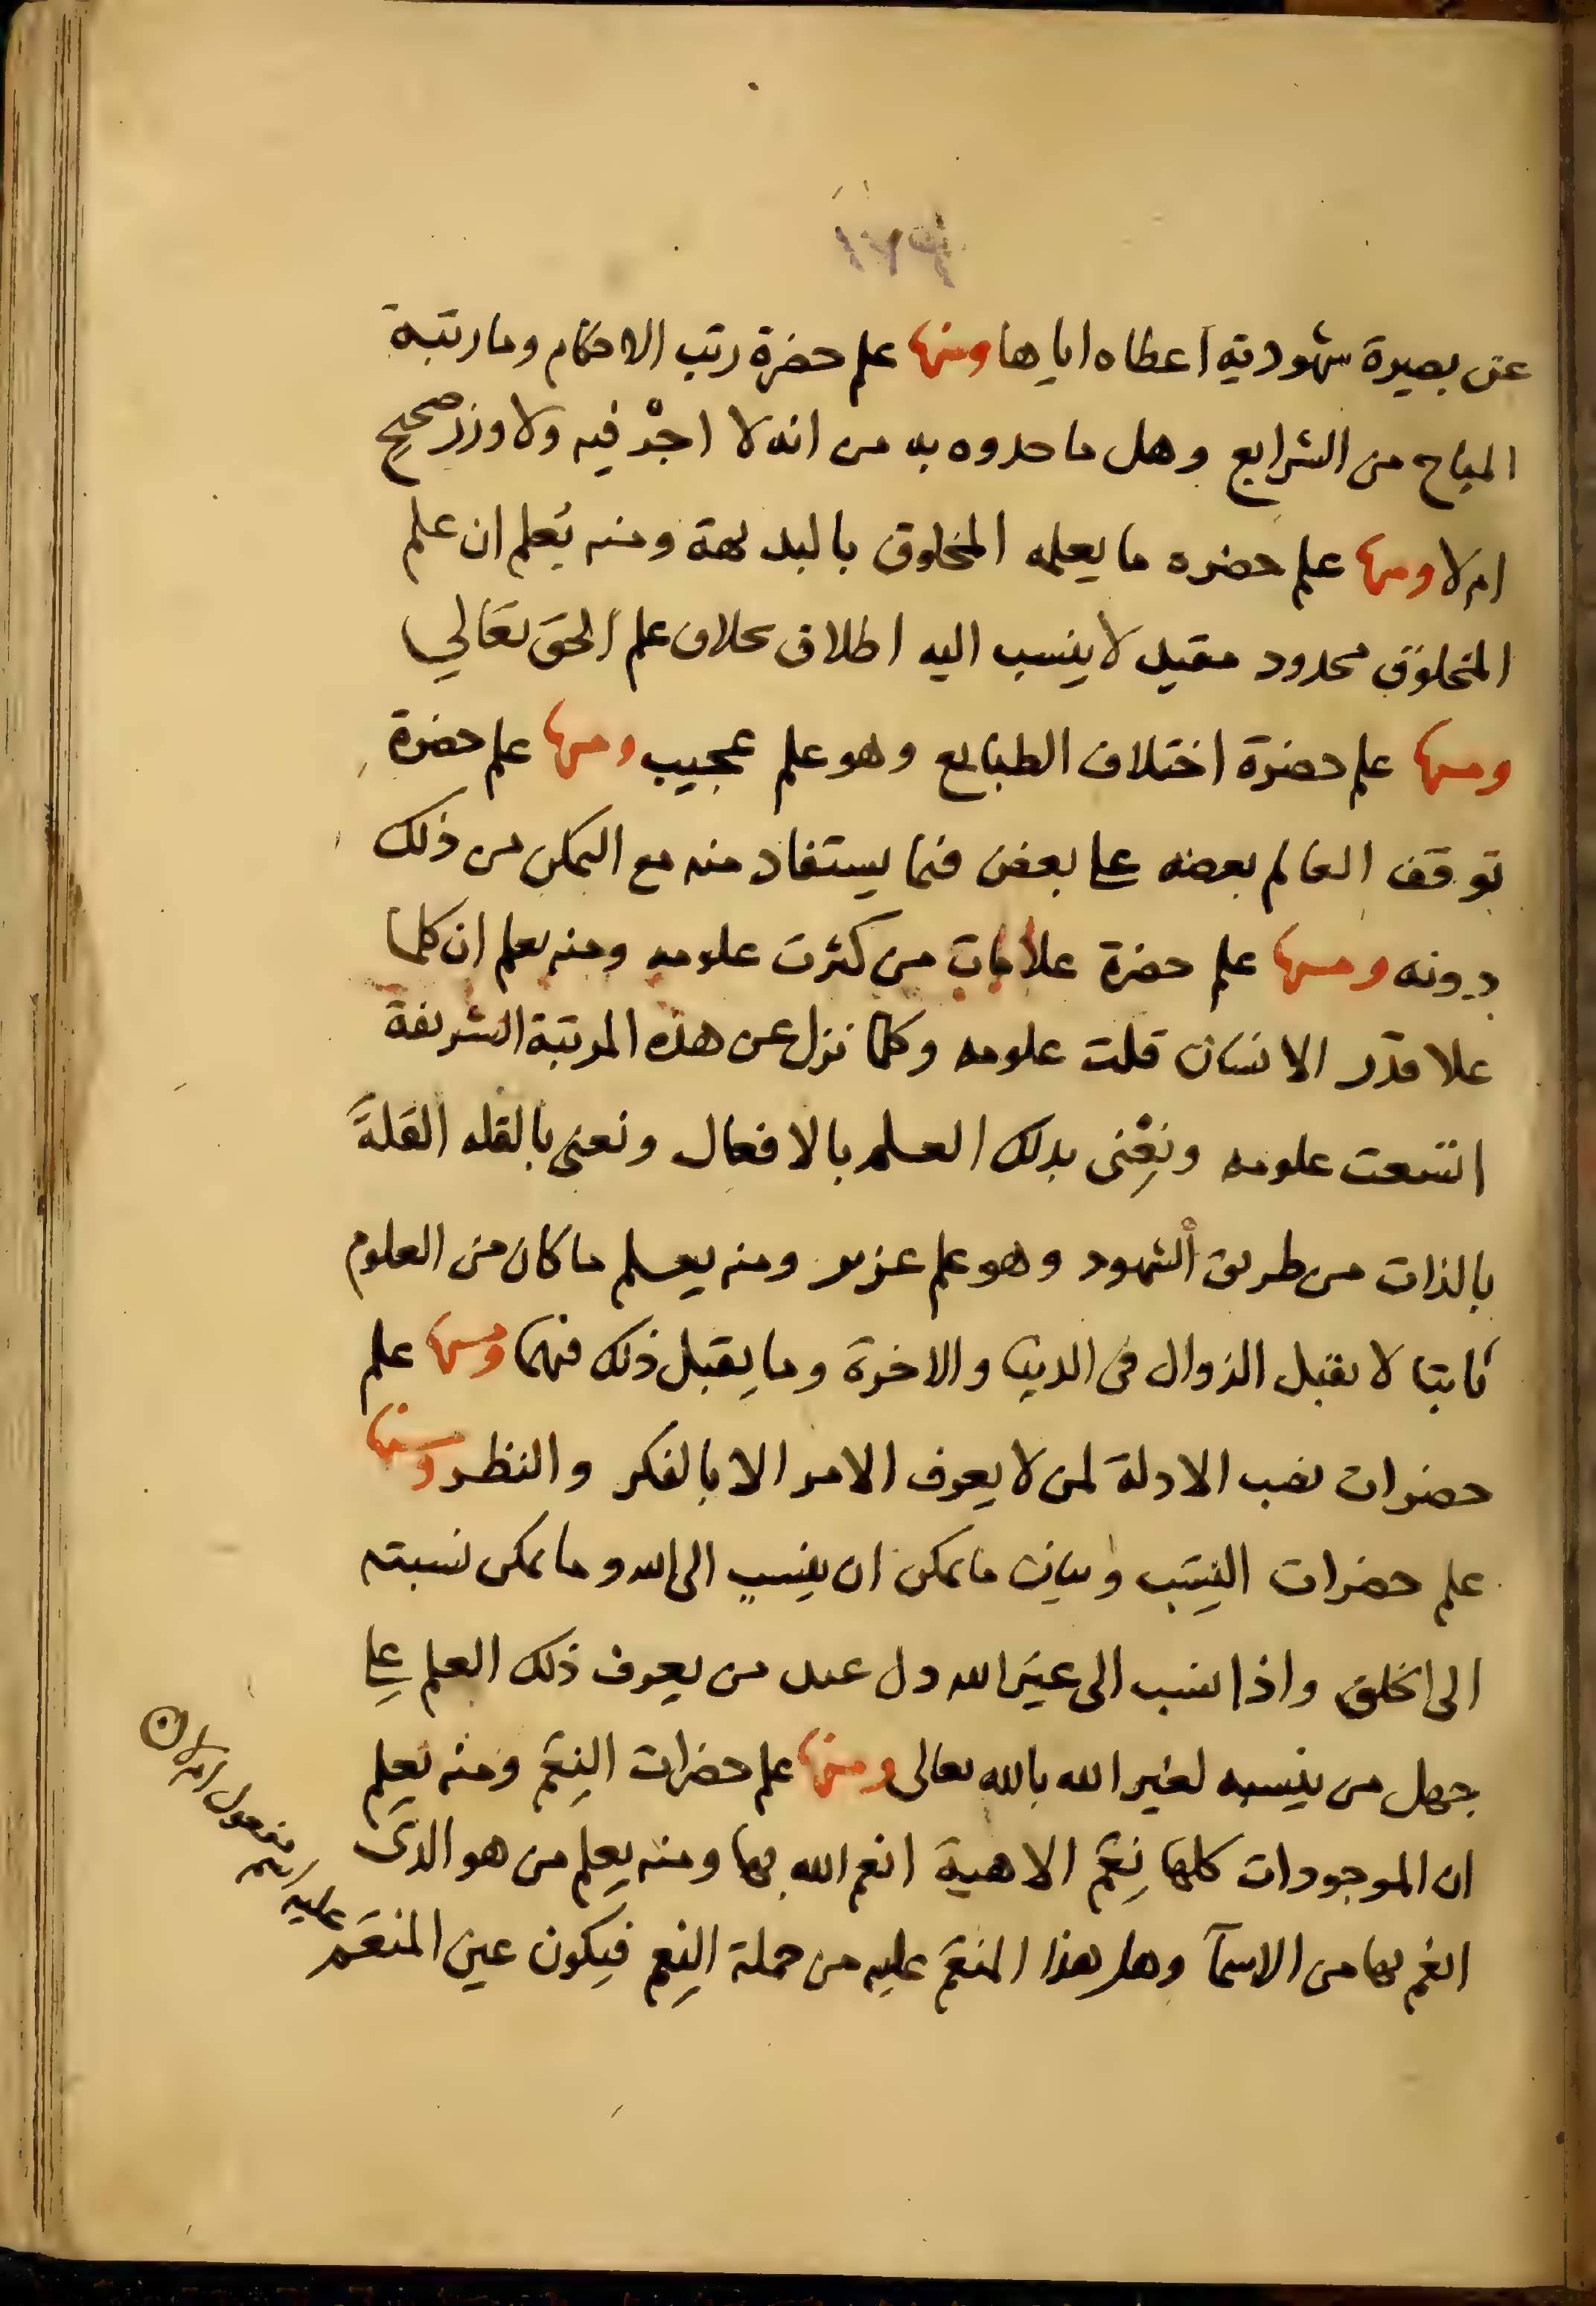 عن بصيرة شهودية اعطاه اياها ومنها علم حضرة رتب الاحكام وما رتبة
المباح من الشرايع وهل ما حدوه به من انه لا اجْر فيه ولا وزر صحيح
ام لا ومنها علم حضره ما يعلمه المخلوق بالبديهة ومنه يُعلم ان علم
المخلوق محدود مقيد لا ينسب اليه اطلاق بخلاف علم الحق تعالي
ومنها علم حضرة اختلاف الطبايع وهو علم عجيب ومنها علم حضرة
توقف العالم بعضه على بعض فيما يستفاد منه مع التمكن من ذلك
دونه ومنها علم حضرة علامات من كثرت علومه ومنه يعلم ان كلما
علا قدر الانسان قلت علومه وكلما نزل عن هذه المرتبة الشريفة
اتسعت علومه ونعْنى بذلك العلم بالافعال ونعنى بالقله القلةَ
بالذات من طريق الشهود وهو علم عزيز ومنه يعلم ما كان من العلوم
ثابتا لا يقبل الزوال فى الدنيا والاخرة وما يقبل ذلك فيهما ومنها علم
حضرات نصب الادلة لمن لا يعرف الامر الا بالفكر والنظر ومنها
علم حضرات النِسَب وبيان ما يمكن ان ينسب الى الله وما يمكن نسبته
الى الخلق واذا نسب الى غيَر الله دل عند من يعرف ذلك العلم على
جهل من ينسبه لغير الله بالله تعالى ومنها علم حضرات النِعَم ومنه يعلم
ان الموجودات كلها نِعَم الاهية انعم الله بها ومنه يعلم من هو الذى
انعم بها من الاسمآ وهل هذا المنعَم عليه من جملة النِعم فيكون عين المنعَم
عليه اسم مفعول ام لا